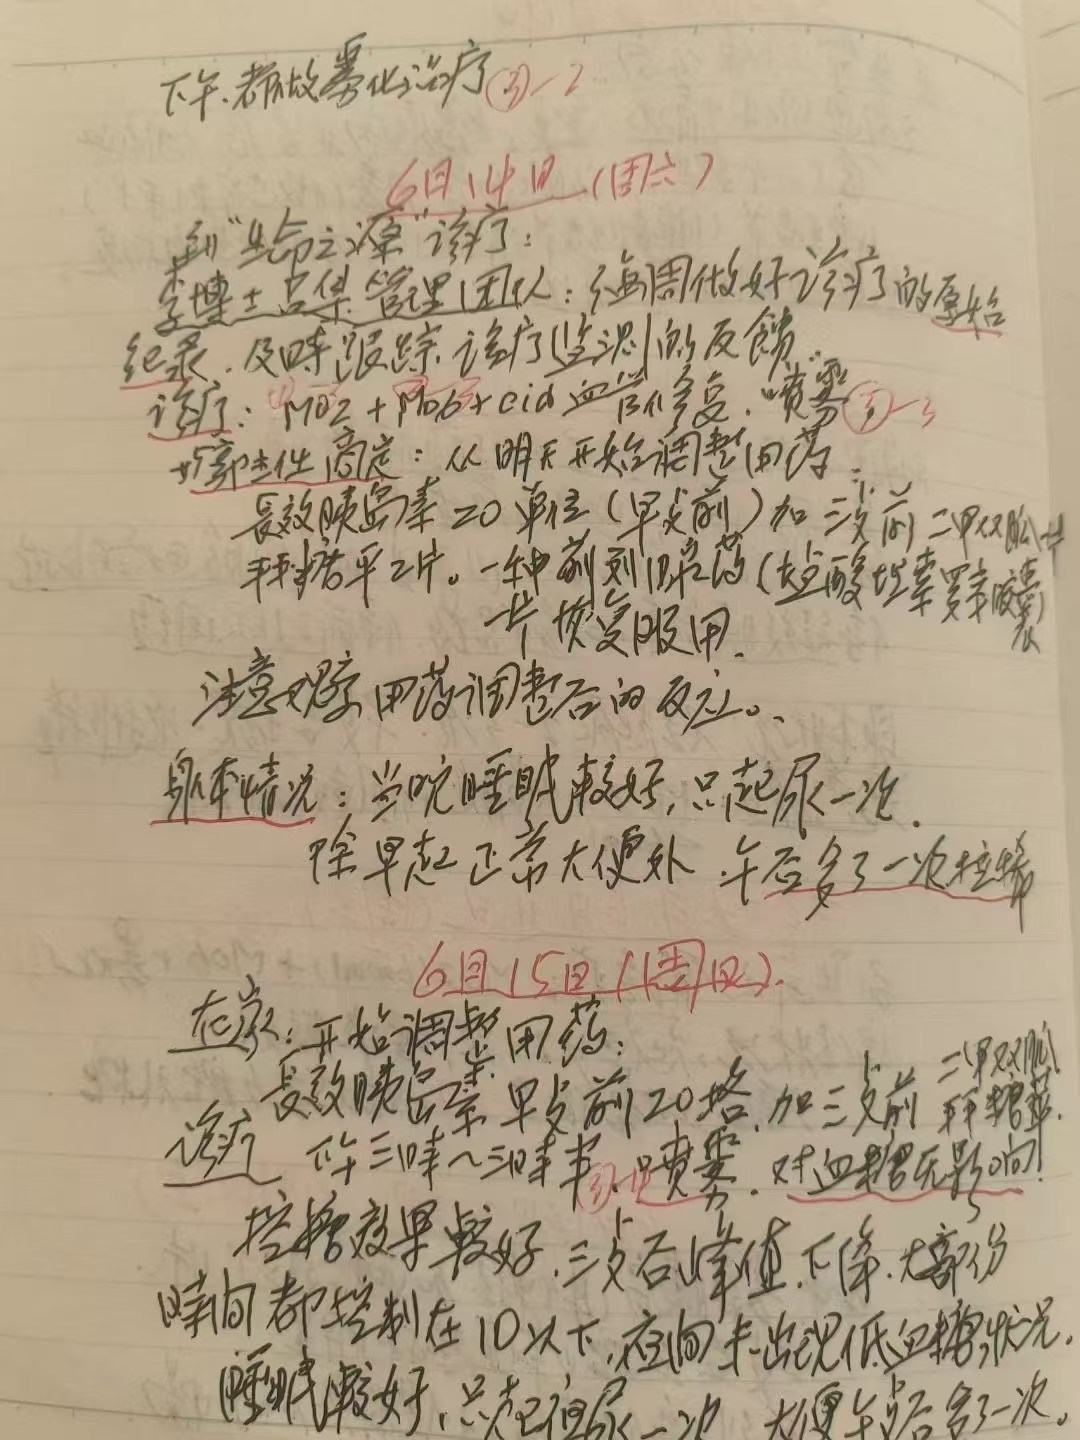 下午.都做雾化治疗③-2
6月14日(周六)
到"生命之源"诊疗:
李博士召集管理团队:强调做好诊疗的原始
纪录.及时跟踪诊疗监测的反馈.
诊疗:M02+M06+cid血管修复.喷雾③-3
与郭主任商定:从明天开始调整用药.
長效胰岛素20单位(早点前)加三点前二甲双胍一片
拜糖平2片。一种前列腺药(盐酸坦索罗辛胶囊)
一片恢复服用.
注意观察用药调整后的反应。
身体情况:当晚睡眠較好,只起尿一次.
除早起正常大便外.午后多了一次拉稀
6月15日(周日).
在家:开始调整用药:
長效胰岛素早点前20格.加三点前二甲双胍
拜糖苹.
诊疗 下午三時~三時半 喷雾.对血糖无影响!
控糖效果較好.三点后峰值下降.大部份
時间都控制在10以下,夜间未出现低血糖状况.
睡眠較好,只起夜尿一次 大便午后多了一次。